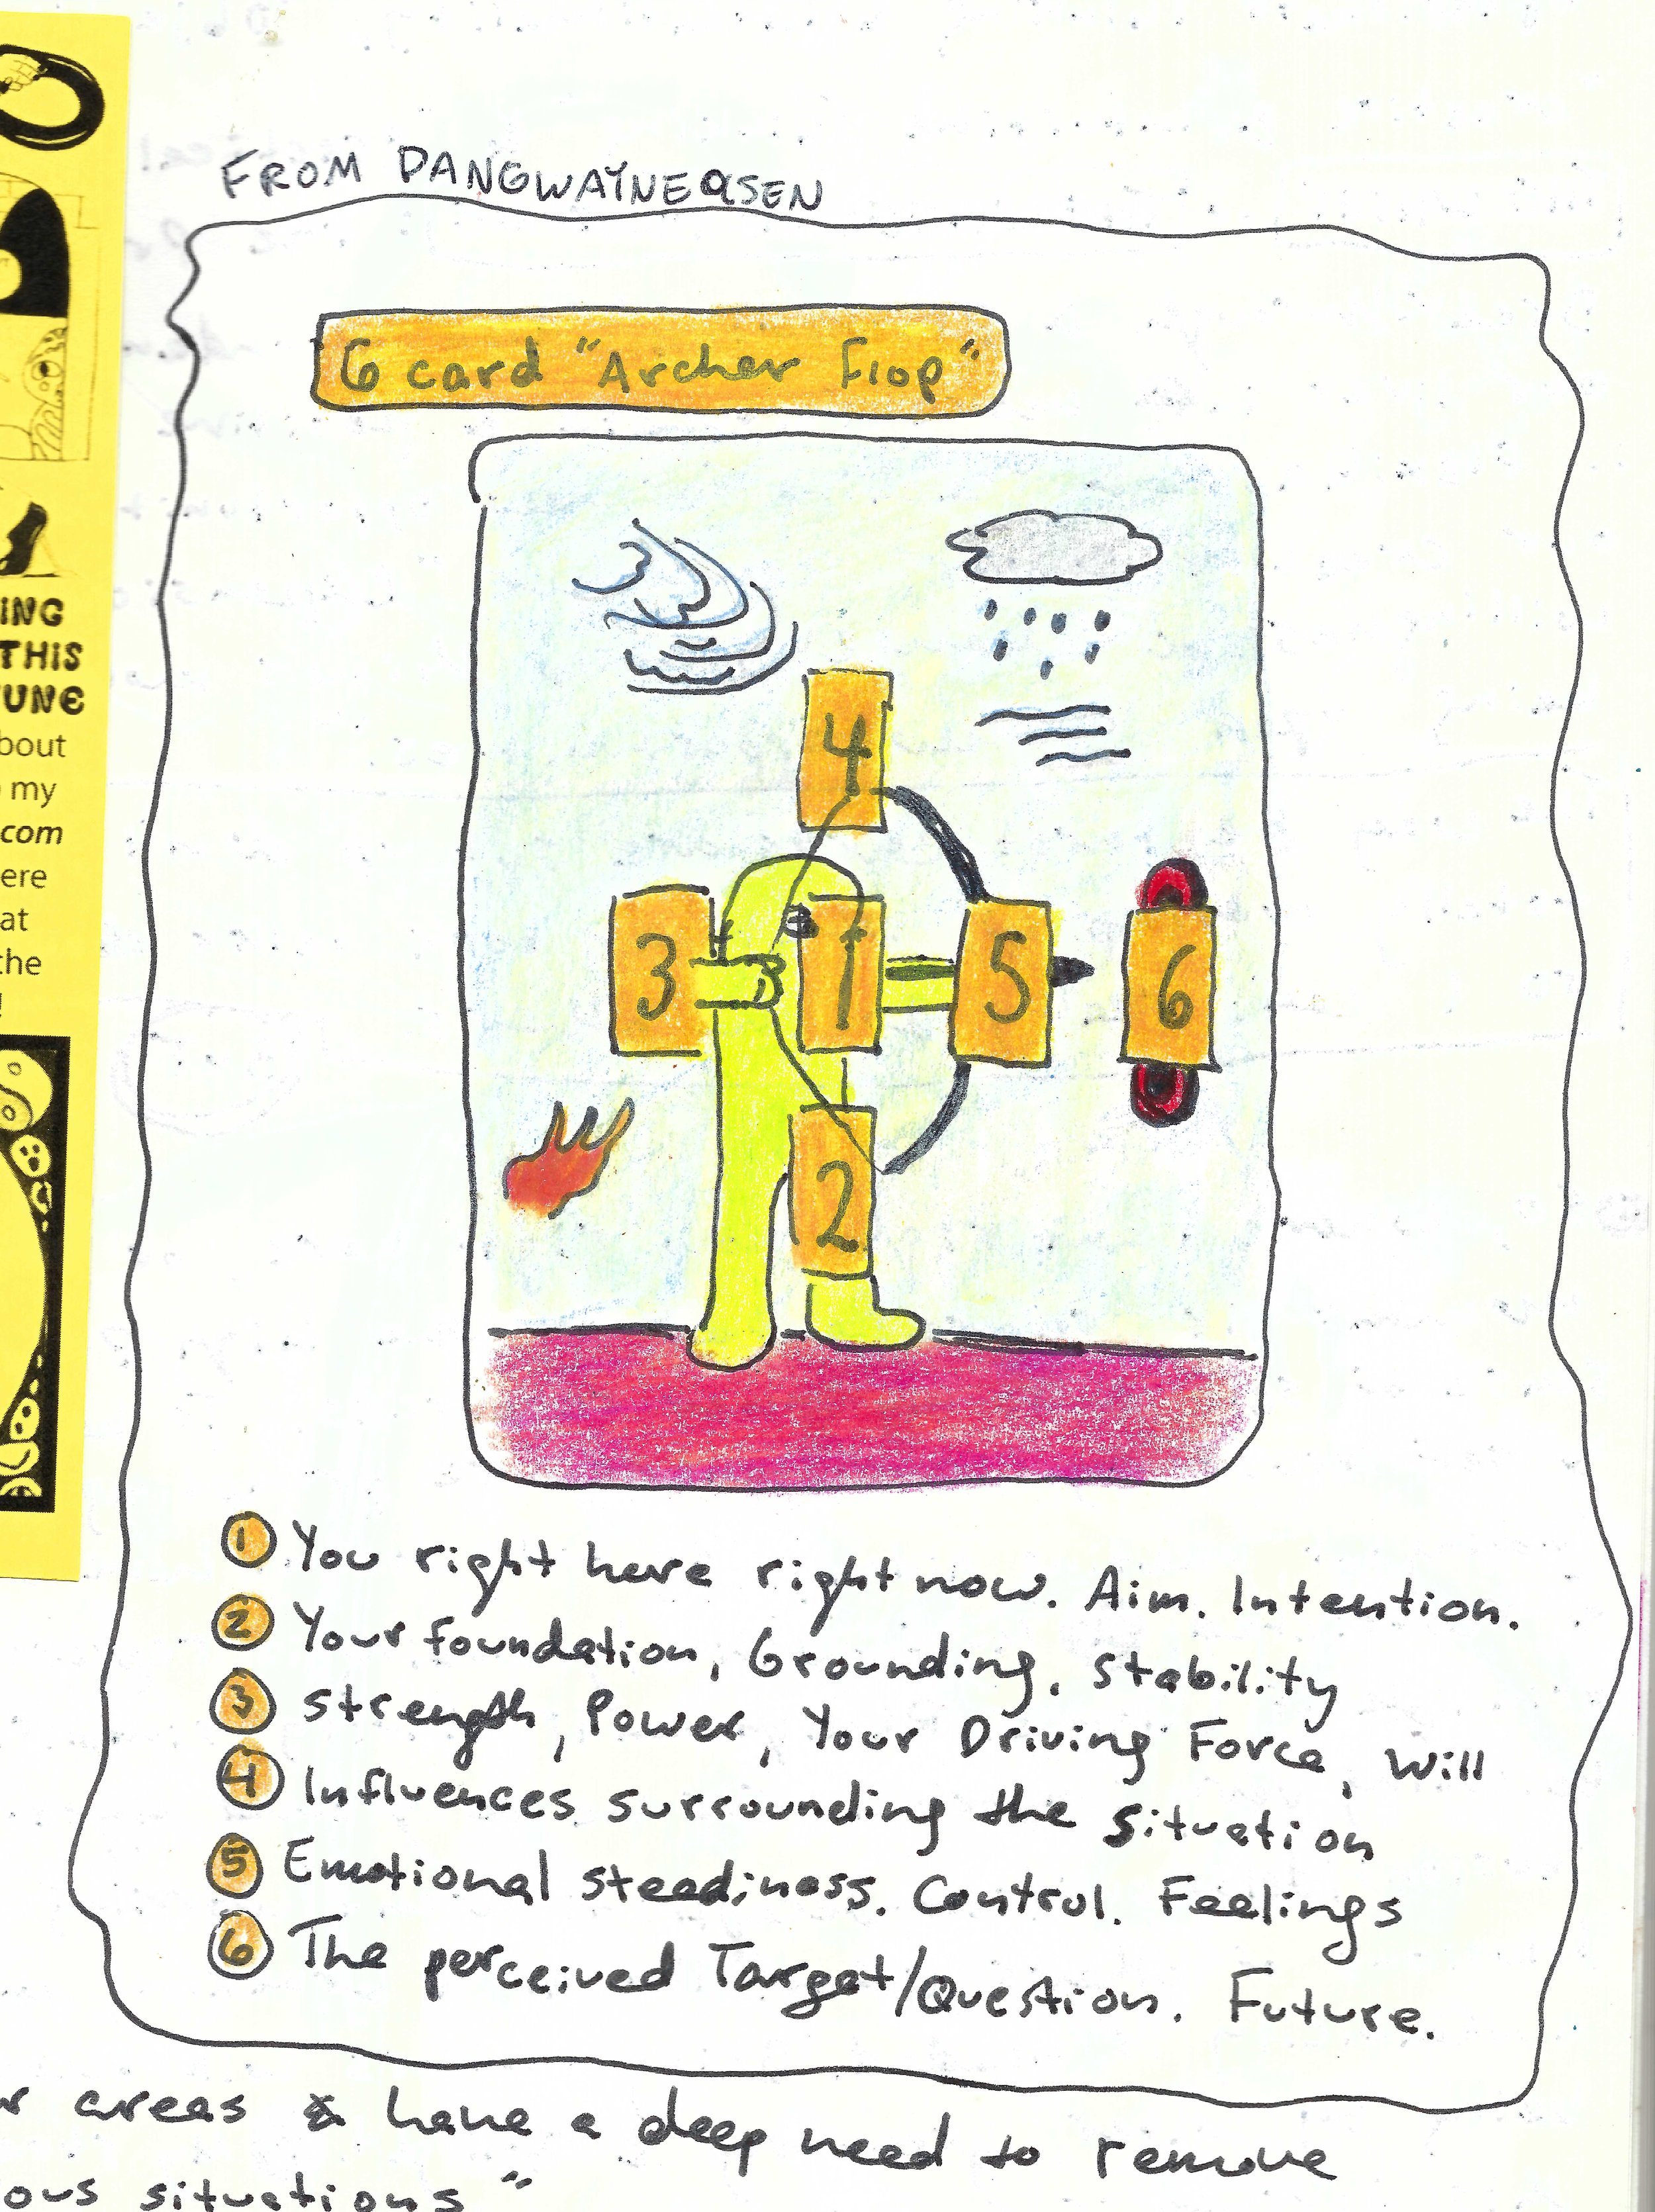 FROM DANGWAYNEOSEN
6 card "Archer Flop"
4
3
1
5
6
2
1 You right here right now. Aim. Intention.
2 Your foundation, Grounding, Stability
3 Strength, Power, Your Driving Force, Will
4 Influences surrounding the situation
5 Emotional steadiness. Control. Feelings
6 The perceived Target/Question. Future.
areas & have a deep need to remove
situations"
ING
THIS
UNE
bout
my
.com
ere
at
the